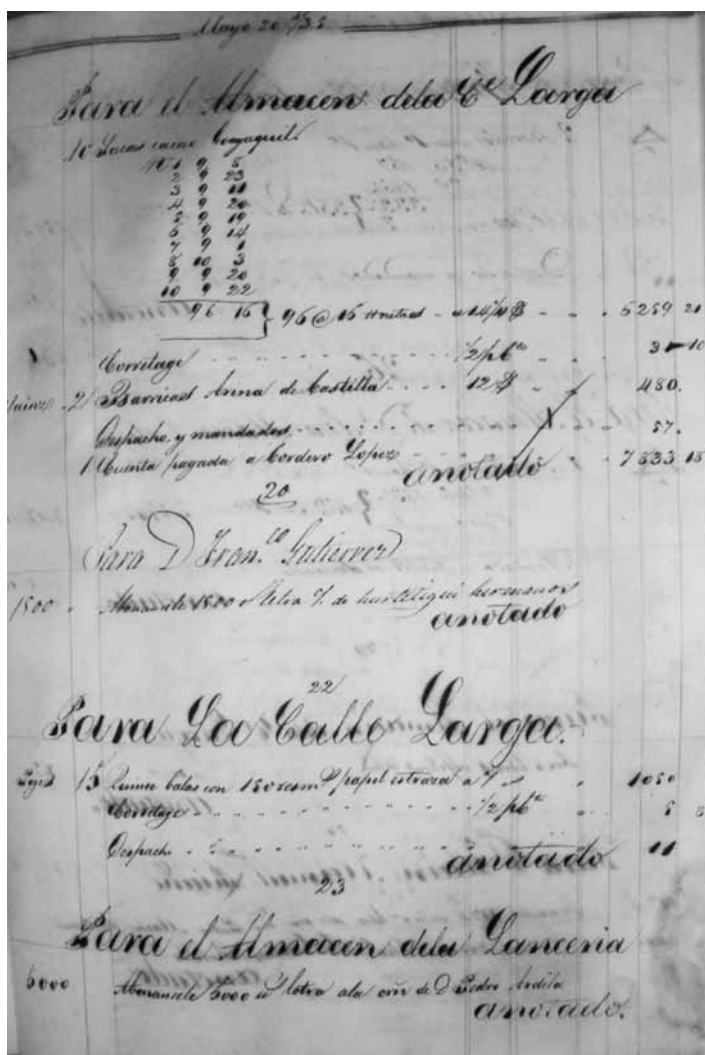 Mayo 20
Para el Almacen dela Ce Larga
10 Sacas cacao Guayaquil
No 1 9 5
2 9 23
3 9 11
4 9 20
5 9 19
6 9 14
7 9 1
8 10 3
9 9 20
10 9 22
96 16 } 96 @ 16 a 14/4 $ 5259 21
Corretage 1/2 p cto 3 10
2 Barricas Arina de Castilla 12 $ 480.
Despacho y mandados 57.
1 Cuenta pagada a Cordero Lopez 7833 18
anotado
20
Para D Fran.co Gutierrez
1500 Abonansele 1500 Letra de hermanos
anotado
22
Para La Calle Larga.
15 Quince balas con 150 resm papel estraza a 7 1050
Corretage 1/2 p cto 5
Despacho 11
anotado
23
Para el Almacen dela Lanceria
5000 Abonansele 5000 letra ala orn de D Pedro Ardila
anotado.